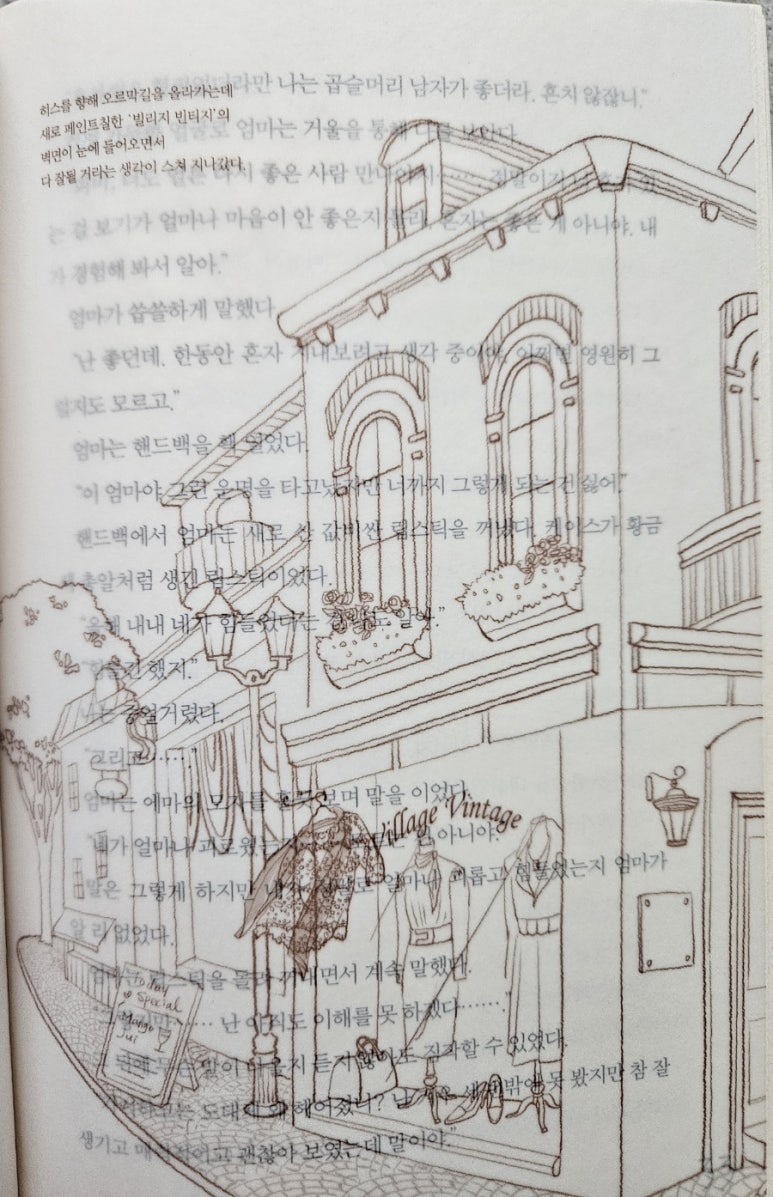 히스를 향해 오르막길을 올라가는데
새로 페인트칠한 '빌리지 빈티지'의
벽면이 눈에 들어오면서
다 잘될 거라는 생각이 스쳐 지나갔다.
나는 곱슬머리 남자가 좋더라. 흔치 않잖니."
엄마는 거울을 통해 나를 보았다.
좋은 사람 만나야지
는 걸 보기가 얼마나 마음이 안 좋은지 몰라. 혼자는 좋은 게 아니야. 내
가 경험해 봐서 알아."
엄마가 씁쓸하게 말했다.
"난 좋던데. 한동안 혼자 지내보려고 생각 중이야. 어쩌면 영원히 그
럴지도 모르고."
엄마는 핸드백을 홱 열었다.
"이 엄마야 그런 운명을 타고났지만 너까지 그렇게 되는 건 싫어."
핸드백에서 엄마는 새로 산 값비싼 립스틱을 꺼냈다. 케이스가 황금
총알처럼 생긴 립스틱이었다.
"올해 내내 네가 힘들었다는 걸 알아."
"힘들긴 했지."
나는 중얼거렸다.
"그리고……."
엄마는 에마의 모자를 흘끗 보며 말을 이었다.
Village Vintage
"네가 얼마나 괴로웠는지 아니야."
말은 그렇게 하지만 내가 정말로 얼마나 괴롭고 힘들었는지 엄마가
알 리 없었다.
엄마는 립스틱을 돌려 꺼내면서 계속 말했다.
"그렇지만…… 난 아직도 이해를 못 하겠다……."
Today
Special
Mango
Jui
그 뒤에 무슨 말이 나올지 듣지 않아도 짐작할 수 있었다.
도대체 왜 헤어졌니? 못 봤지만 참 잘
생기고 매력적이고 괜찮아 보였는데 말이야."